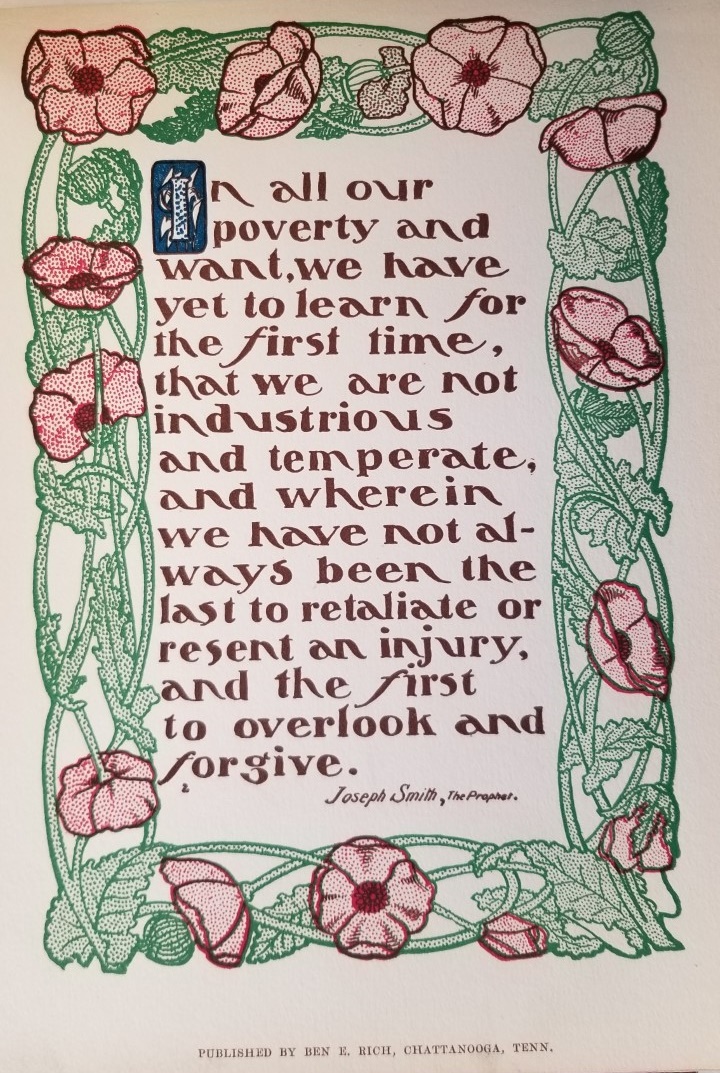 In all our
poverty and
want, we have
yet to learn for
the first time,
that we are not
industrious
and temperate,
and wherein
we have not al-
ways been the
last to retaliate or
resent an injury,
and the first
to overlook and
forgive.
Joseph Smith, The Prophet.
PUBLISHED BY BEN E. RICH, CHATTANOOGA, TENN.